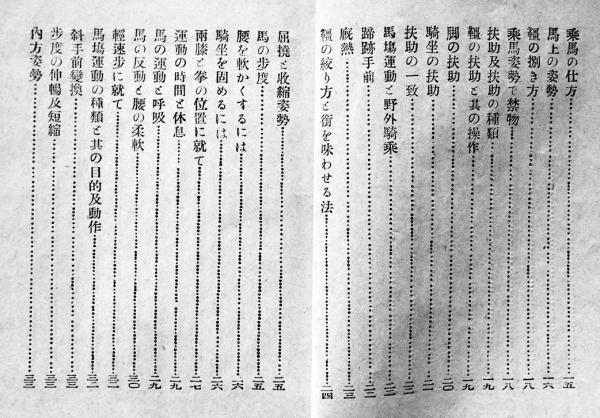 乘馬の仕方……一五
馬上の姿勢……一六
韁の捌き方……一六
乘馬姿勢で禁物……一八
扶助及扶助の種類……一八
韁の扶助と其の操作……一九
脚の扶助……二〇
騎坐の扶助……二一
扶助の一致……二一
馬場運動と野外騎乘……二二
蹄跡手前……二三
厩熱……二三
韁の絞り方と銜を味わせる法……二四
屈撓と收縮姿勢……二五
馬の步度……二五
腰を軟かくするには……二六
騎坐を固めるには……二六
兩膝と拳の位置に就て……二七
運動の時間と休息……二九
馬の運動と呼吸……二九
馬の反動と腰の柔軟……三〇
輕速步に就て……三一
馬場運動の種類と其の目的及動作……三二
斜手前變換……三三
步度の伸暢及短縮……三三
內方姿勢……三三